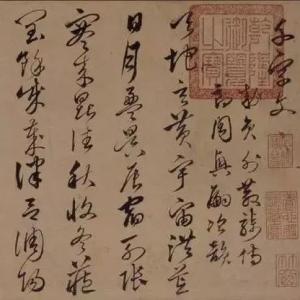 千字文
勅員外散騎侍
郎周興嗣次韻
天地玄黃宇宙洪荒
日月盈昃辰宿列張
寒來暑往秋收冬藏
閏餘成歲律呂調陽